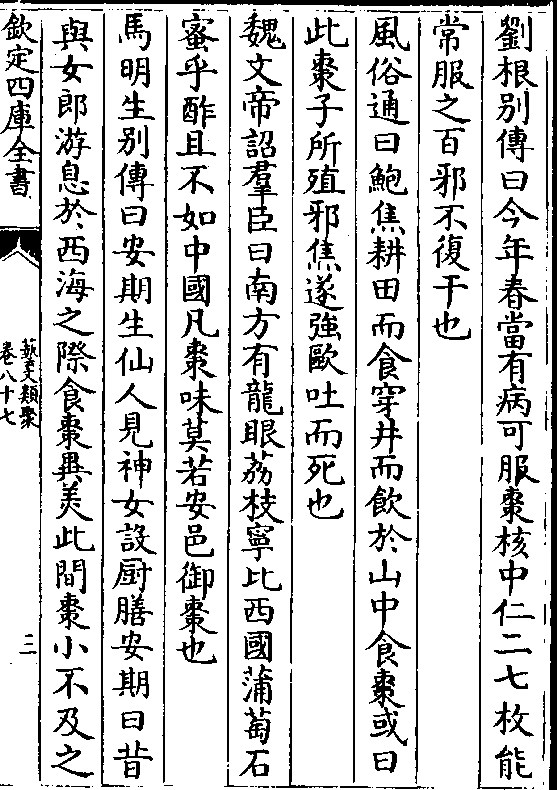 劉根别傳曰今年春當有病可服棗核中仁二七枚能
常服之百邪不復干也
風俗通曰鮑焦耕田而食穿井而飲於山中食棗或曰
此棗子所殖邪焦遂強歐吐而死也
魏文帝詔羣臣曰南方有龍眼荔枝寧比西國蒲萄石
蜜乎酢且不如中國凡棗味莫若安邑御棗也
馬明生别傳曰安期生仙人見神女設厨膳安期曰昔
與女郎游息於西海之際食棗異美此間棗小不及之
欽定四庫全書
藝文類聚
卷八十七
三